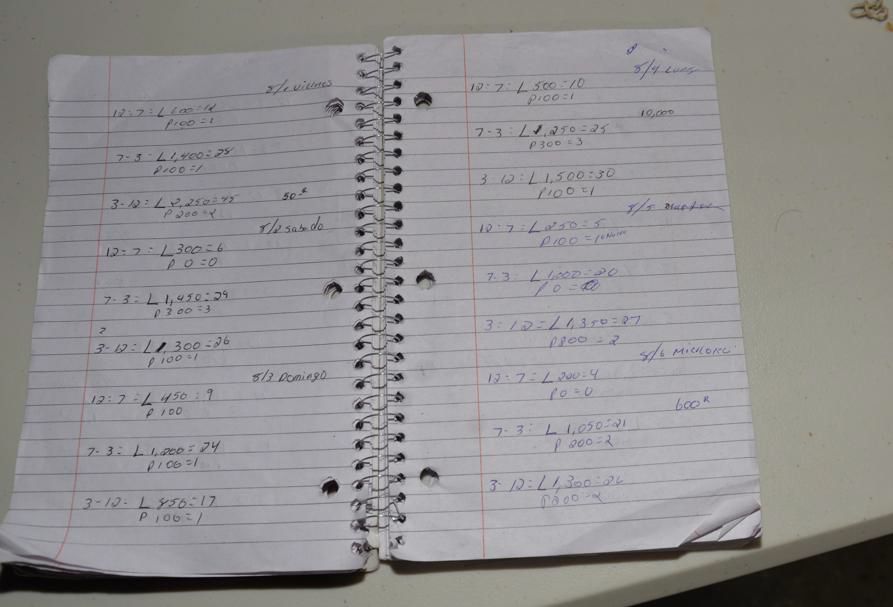 8/1 viernes
12:7 = L 600 = 12
P100 = 1
7-3 = L 1,400 = 28
P100 = 1
3-12 = L 2,250 = 45 50-R
P 200 = 2
8/2 sabado
12:7 = L 300 = 6
P 0 = 0
7-3 = L 1,450 = 29
P 300 = 3
2
3-12 = L 1,300 = 26
P 100 = 1
8/3 Domingo
12:7 = L 450 = 9
P 100
7-3 = L 1,200 = 24
P 100 = 1
3-12 - L 850 = 17
P 100 = 1
8/4 Lunes
12:7 = L 500 = 10
P100 = 1
10,000
7-3 = L 1,250 = 25
P300 = 3
3-12 = L 1,500 = 30
P100 = 1
8/5
12:7 = L 250 = 5
P 100 = 1
7-3 = L 1,000 = 20
P 0 = 0
3:12 = L 1,350 = 27
P200 = 2
8/6 Miercoles
12:7 = L 200 = 4
P0 = 0
600-R
7-3 = L 1,050 = 21
P 200 = 2
3-12 = L 1,300 = 26
P200 = 2